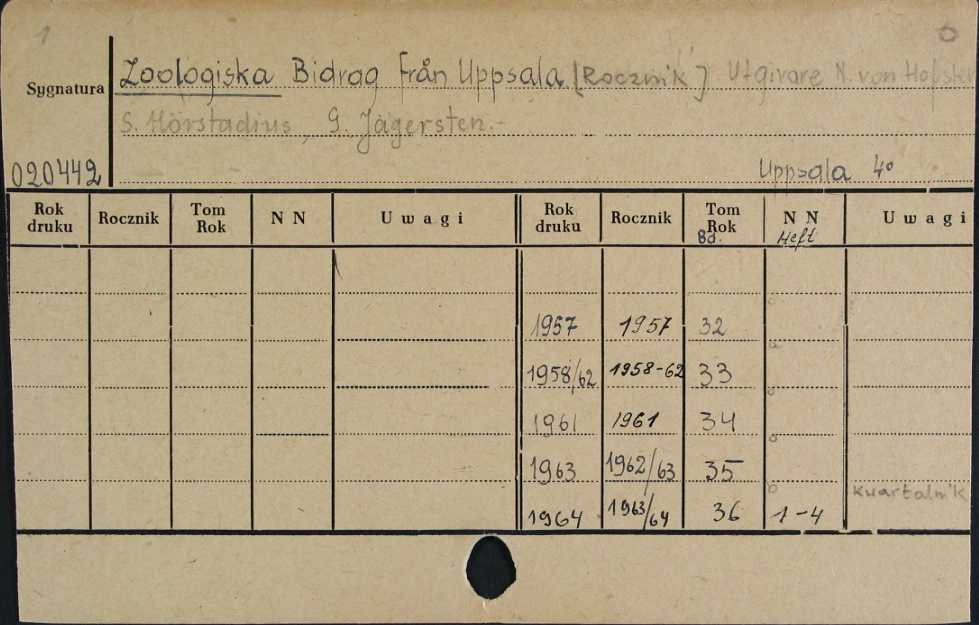 1
Sygnatura
Zoologiska Bidrag Från Uppsala. [Rocznik] Utgivare N. von Hofsk
S. Hörstadius, G. Jägersten.-
020442
Uppsala 4°
Rok druku Rocznik Tom Rok N N Uwagi Rok druku Rocznik Tom Rok N N Uwagi
Bd. Heft
1957 1957 32
1958/62 1958-62 33
1961 1961 34
1963 1962/63 35
kwartalnik
1964 1963/64 36 1-4